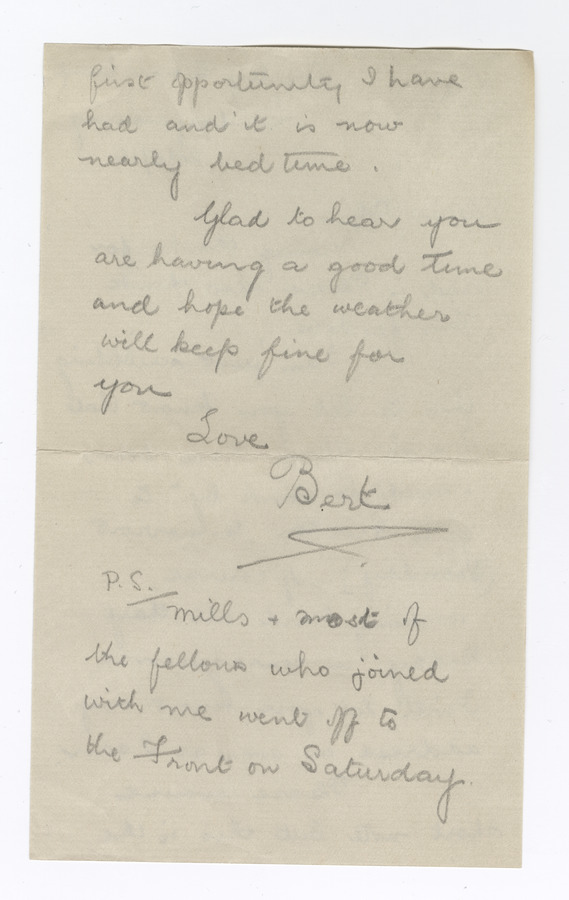 first opportunity I have
had and it is now
nearly bed time.
Glad to hear you
are having a good time
and hope the weather
will keep fine for
you
Love
Bert
P.S.
Mills + most of
the fellows who joined
with me went off to
the Front on Saturday.